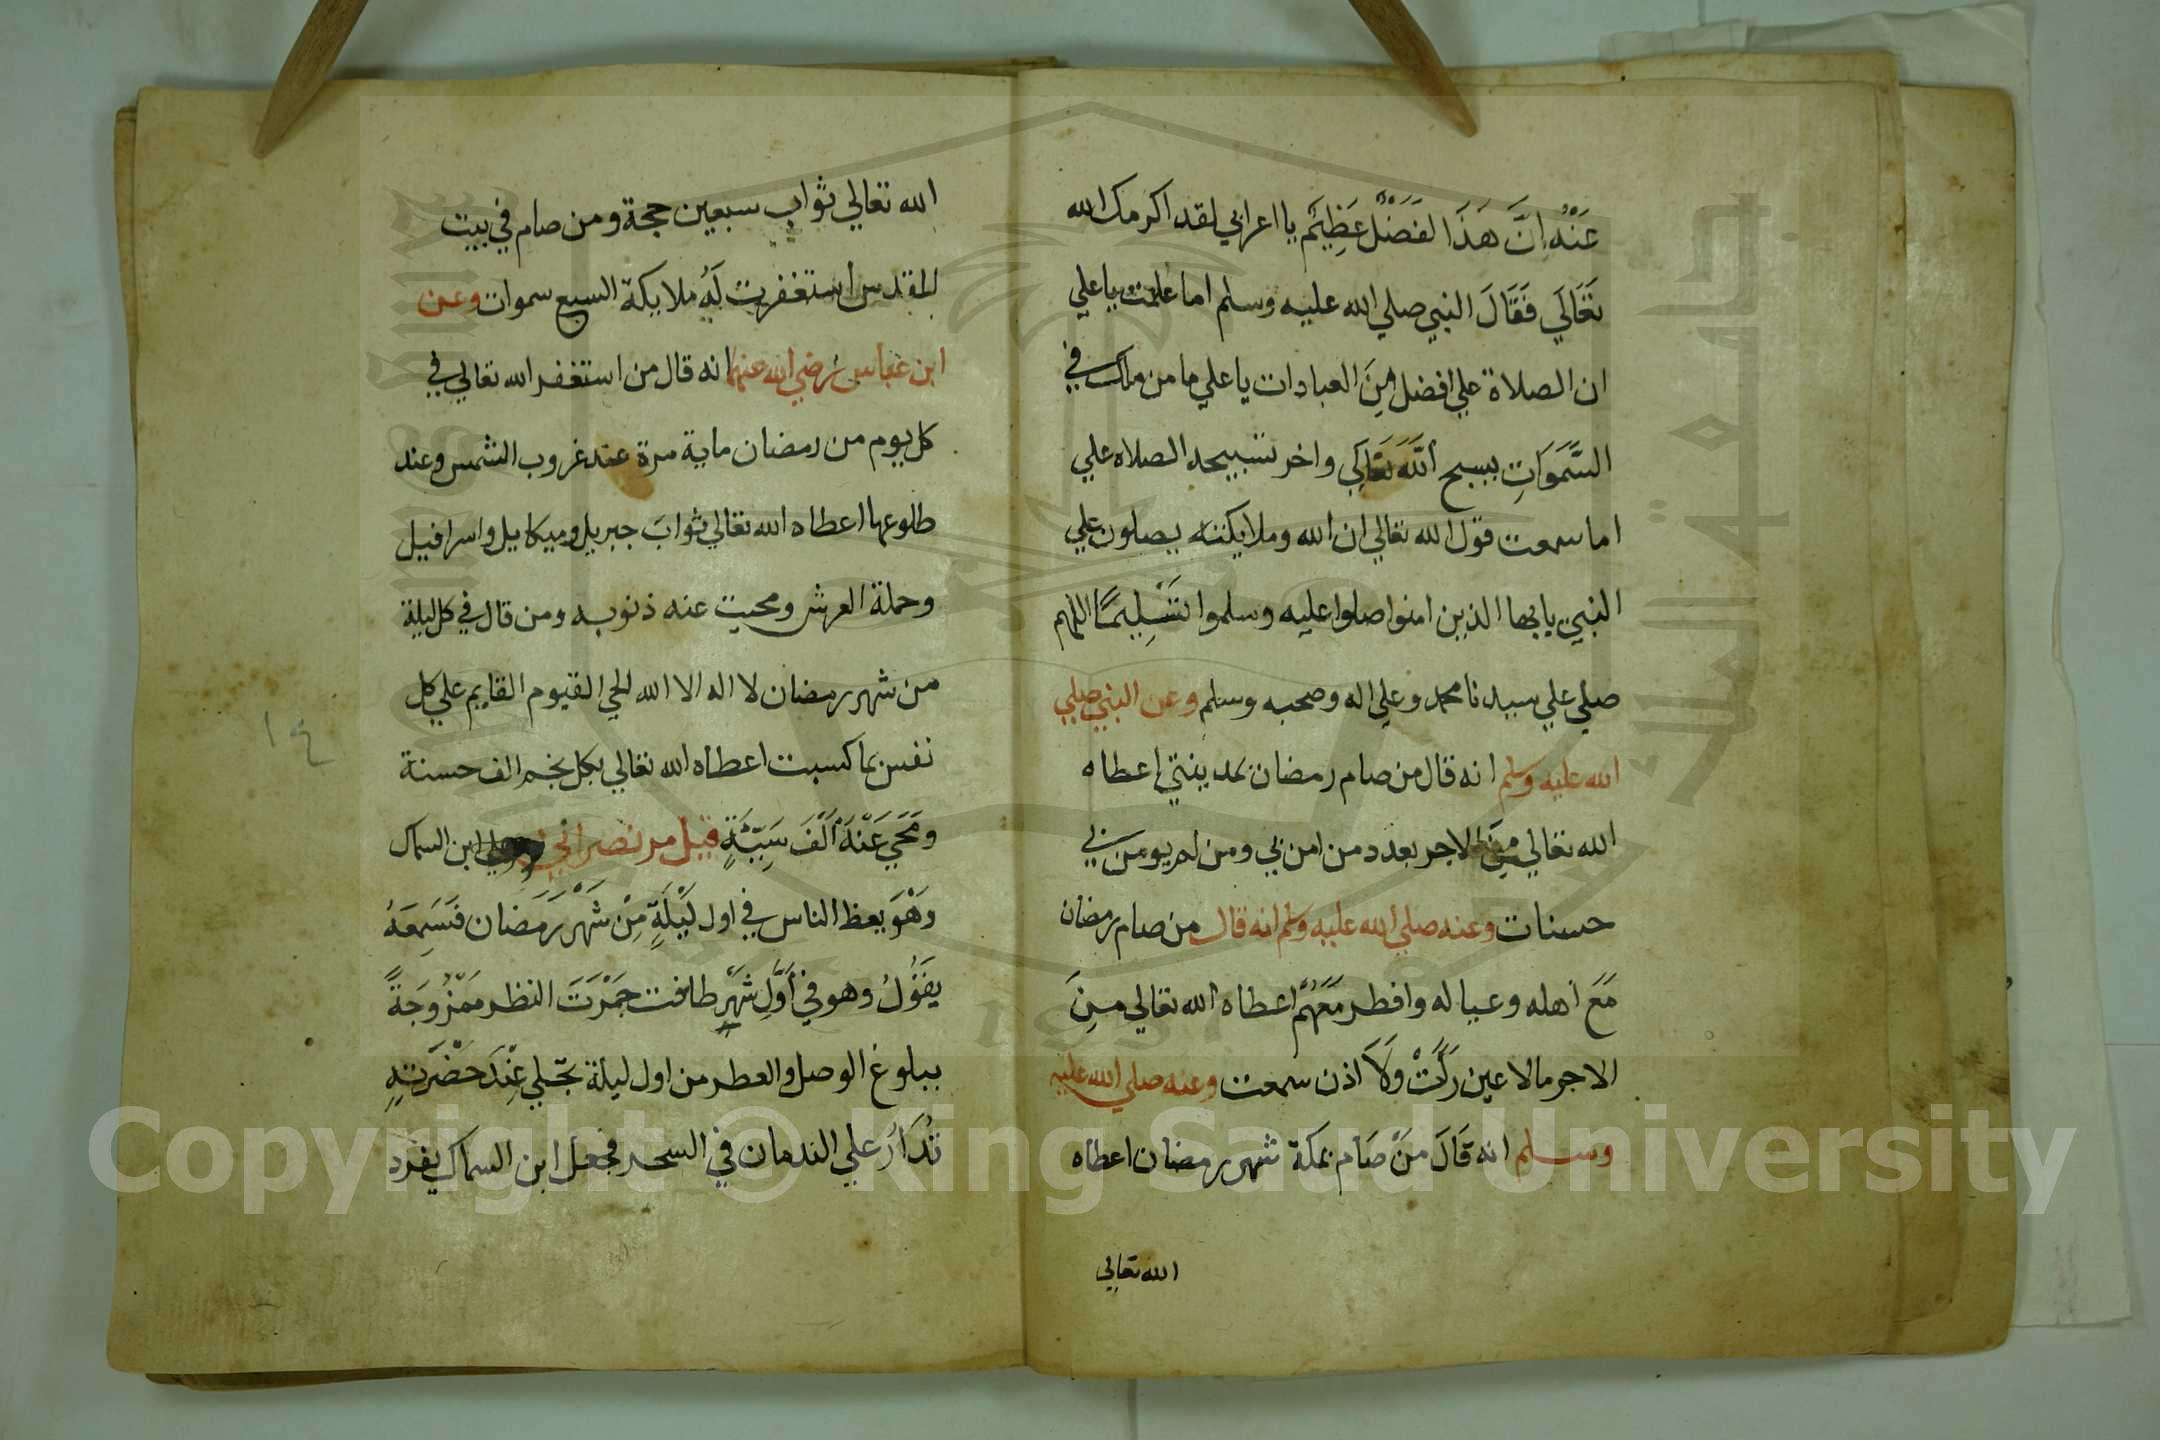 عَنْهُ اِنَّ هَذَا لفَضَلٌ عَظِيْمٌ يا اعرابي لقد اكرمك الله
تَعَالَي فَقَالَ النبي صلي الله عليه وسلم اما علمت ياعلي
ان الصلاة علي افضل مِنَ العبادات يا علي ما من ملك في
السَّمَوَاتِ يسبح اللَّه تَعَالَي واخر تسبيحه الصلاه علي
اما سمعت قول الله تعالي ان الله وملايكته يصلون علي
النبي يايها الذين امنوا صلوا عليه وسلموا تَسْلِيمًا اللهم
صلي علي سيدنا محمد وعلي اله وصحبه وسلم وعن النبي صلي
الله عليه وسلم انه قال من صام رمضان بمدينتي اعطاه
الله تعالي مِنَ الاجر بعدد من امن بي ومن لم يومن بي
حسنات وعنه صلي الله عليه وسلم انه قال من صام رمضان
مَعَ اهله وعياله وافطر مَعَهُمْ اعطاه الله تعالي مِنَ
الاجر مالا عين رَأَتْ وَلَا اذن سمعت وعنه صلي الله عليه
وسلم انه قَالَ مَنْ صَام بمكة شهر رمضان اعطاه
الله تعالي
الله تعالي ثواب سبعين حجة ومن صام في بيت
المقدس استغفرت لَهُ ملايكة السبع سموات وعن
ابن عباس رضي الله عنهما انه قال من استغفر الله تعالي في
كل يوم من رمضان ماية مرة عند غروب الشمس وعند
طلوعها اعطاه الله تعالي ثوابَ جبريل وميكاييل واسرافيل
وحملة العرش ومحيت عنه ذنوبه ومن قال في كل ليلة
من شهر رمضان لا اله الا الله الحي القيوم القايم علي كل
نفس بما كسبت اعطاه الله تعالي بكل نجم الف حسنة
ومَحَي عَنْهُ اَلْفَ سَيِّئَةٍ قيل مر نصراني علي ابن السماك
وَهْوَ يعظ الناس في اول لَيْلَةٍ مِنْ شَهْرِ رَمَضان فَسَمِعَهُ
يَقُولُ وهو في أَوَّلِ شَهْرٍ طافت خَمْرَتَ النظر مَمْزُوجَةً
ببلوغ الوصل والعطر من اول ليلة تجلي عِنْدَ حَضْرَتِهِ
تُدَارُ علي الندمان في السحر فجعل ابن السماك يفرد
١٤
Copyright © King Saud University
جامعة الملك سعود
1957